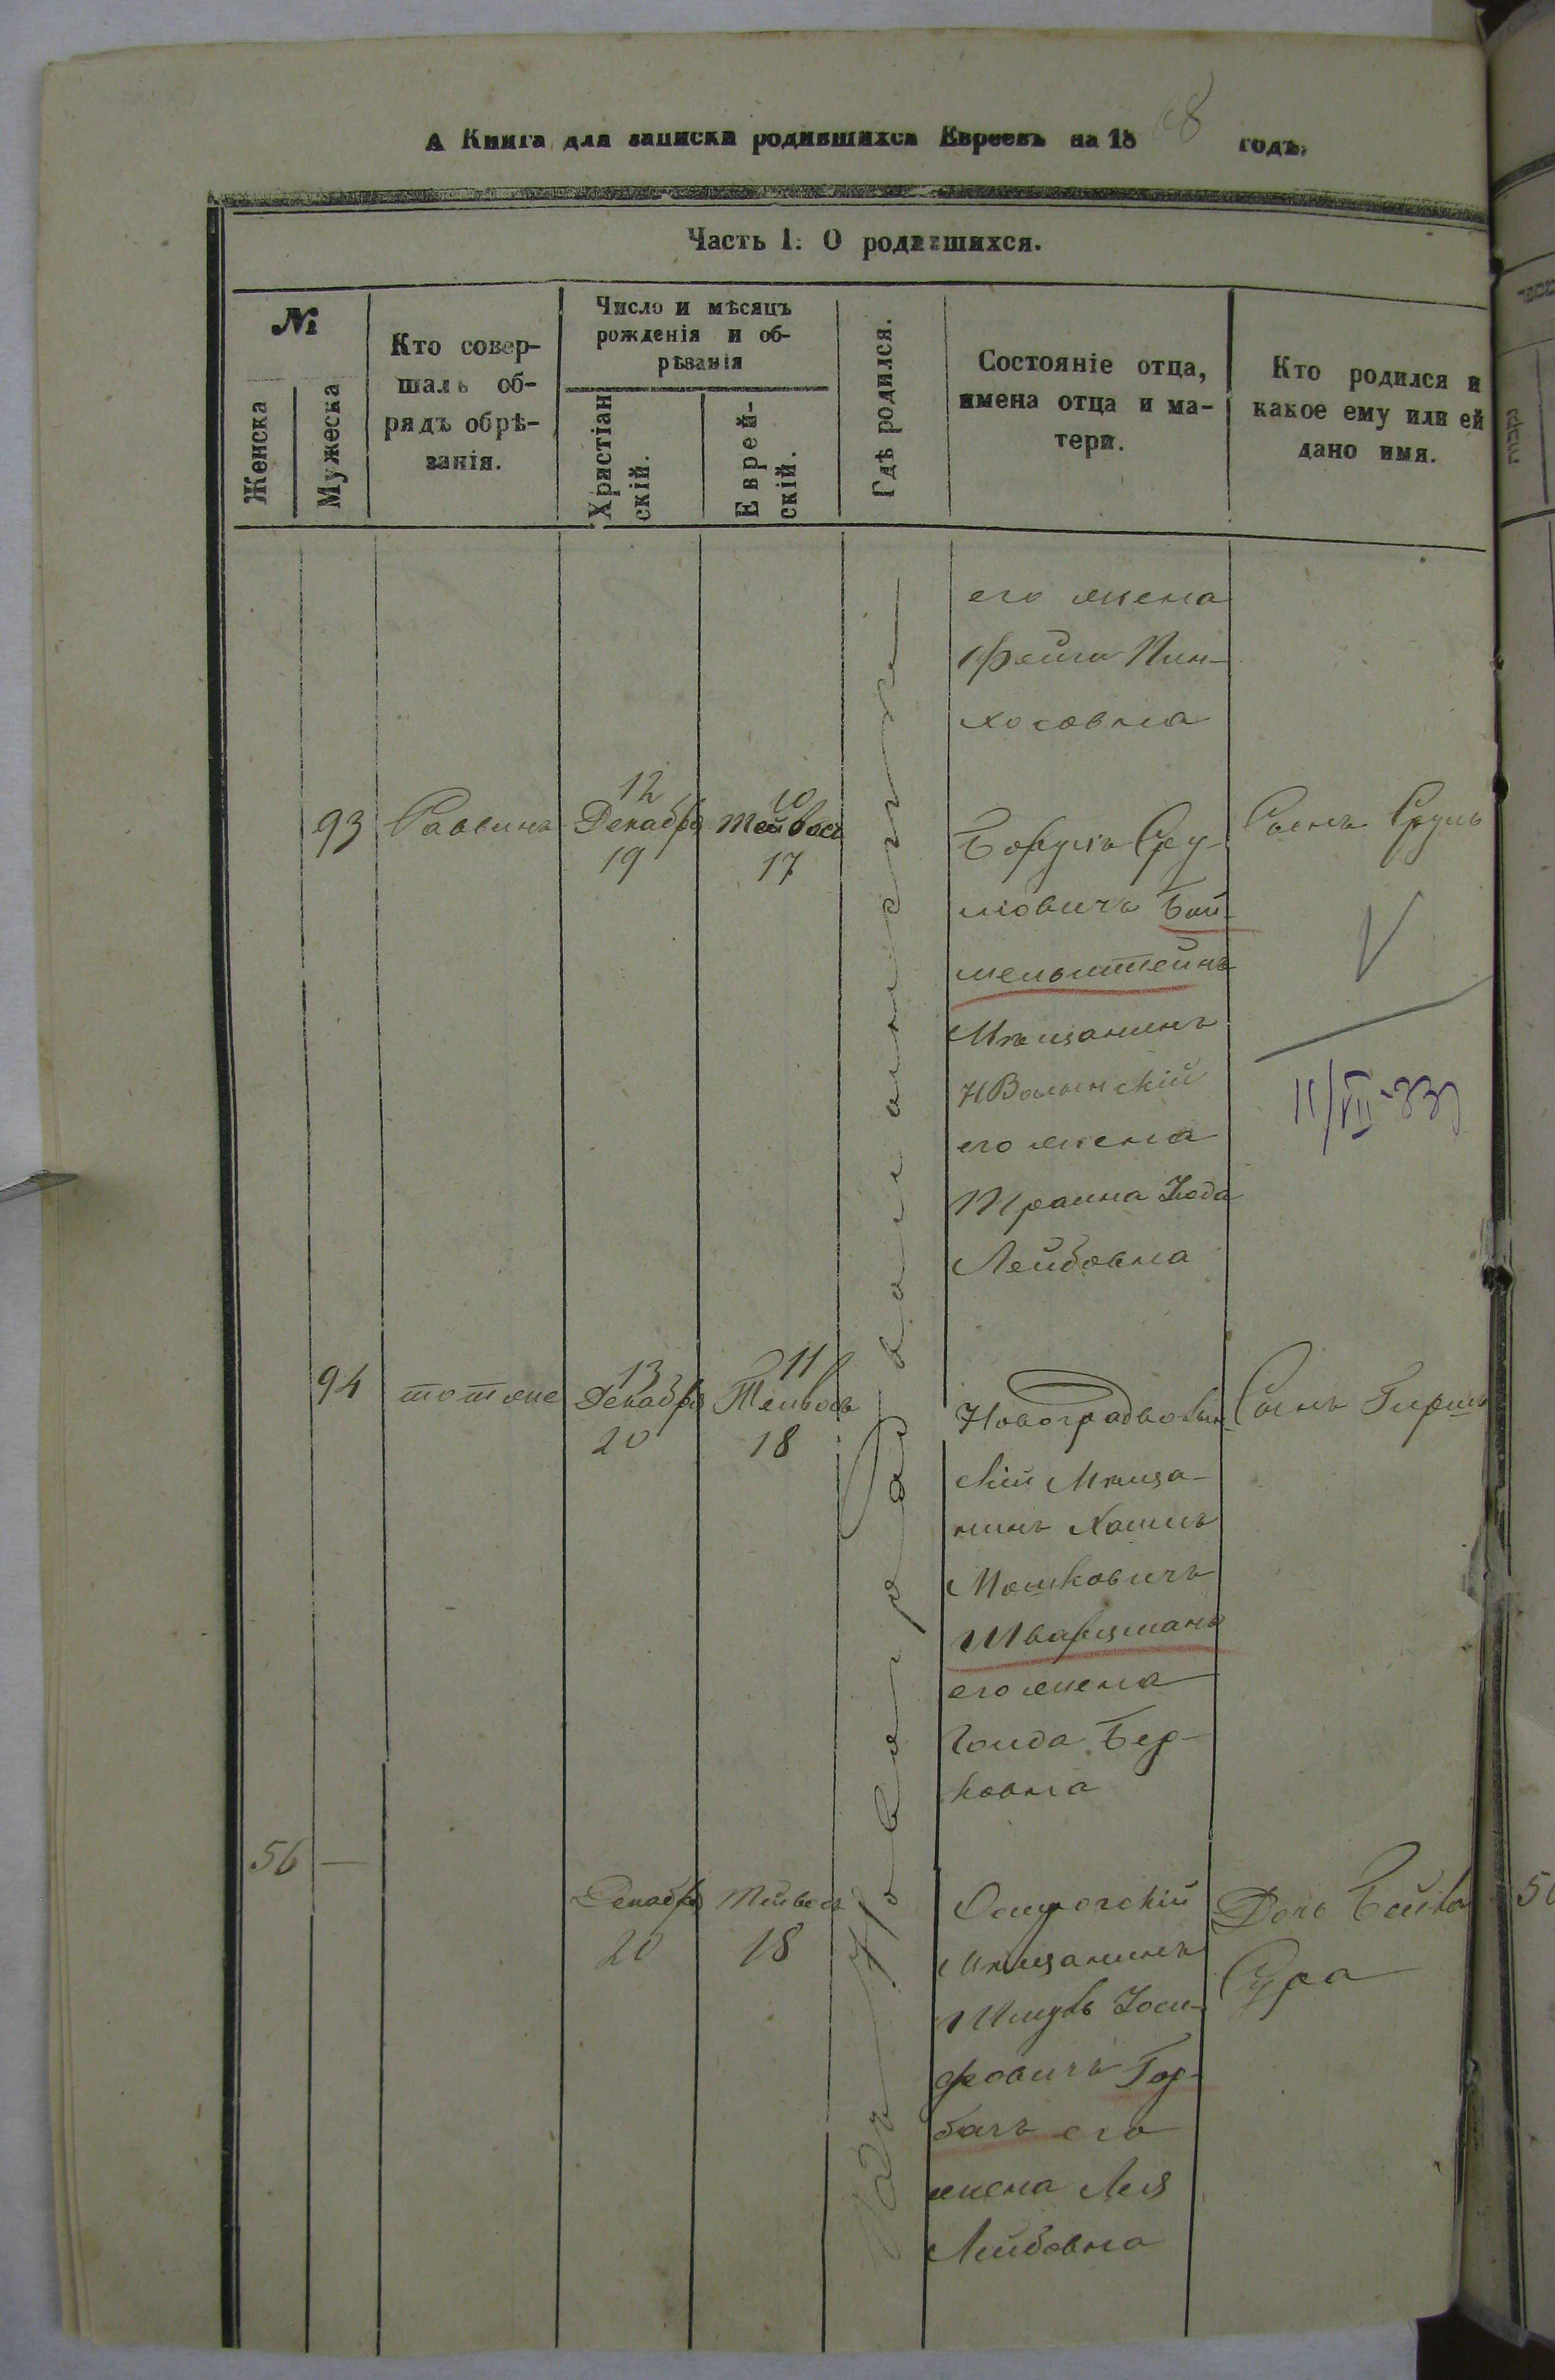 А Книга для записки родившихся Евреевъ на 1868 годъ.
Часть 1. О родившихся.
№
Женска
Мужеска
Кто совер-
шалъ об-
рядъ обрѣ-
занія.
Число и мѣсяцъ
рожденія и об-
рѣзанія
Христіан
скій.
Еврей-
скій.
Гдѣ родился.
Состояніе отца,
имена отца и ма-
тери.
Кто родился и
какое ему или ей
дано имя.
его жена
Фейга Пин-
хосовна
93
Раввинъ
12
Декабря
19
10
Тейвесъ
17
Борухъ Сру-
левичъ Бай-
мельштейнъ
Мѣщанинъ
НВолынскій
его жена
Фрайма Хода
Лейбовна
Сынъ Сруль
11/VII-939
94
тотже
13
Декабря
20
11
Тейвесъ
18
Новоградволын
скій Мѣща-
нинъ Хаимъ
Мошковичъ
Шварцманъ
его жена
Голда Бер-
ковна
Сынъ Гершъ
56
—
Декабря
20
Тейвесъ
18
Острогскій
Мѣщанинъ
Шмуль Іоси-
фовичъ Гор-
бачъ его
жена Лея
Лейбовна
Дочь Бейла
Сура